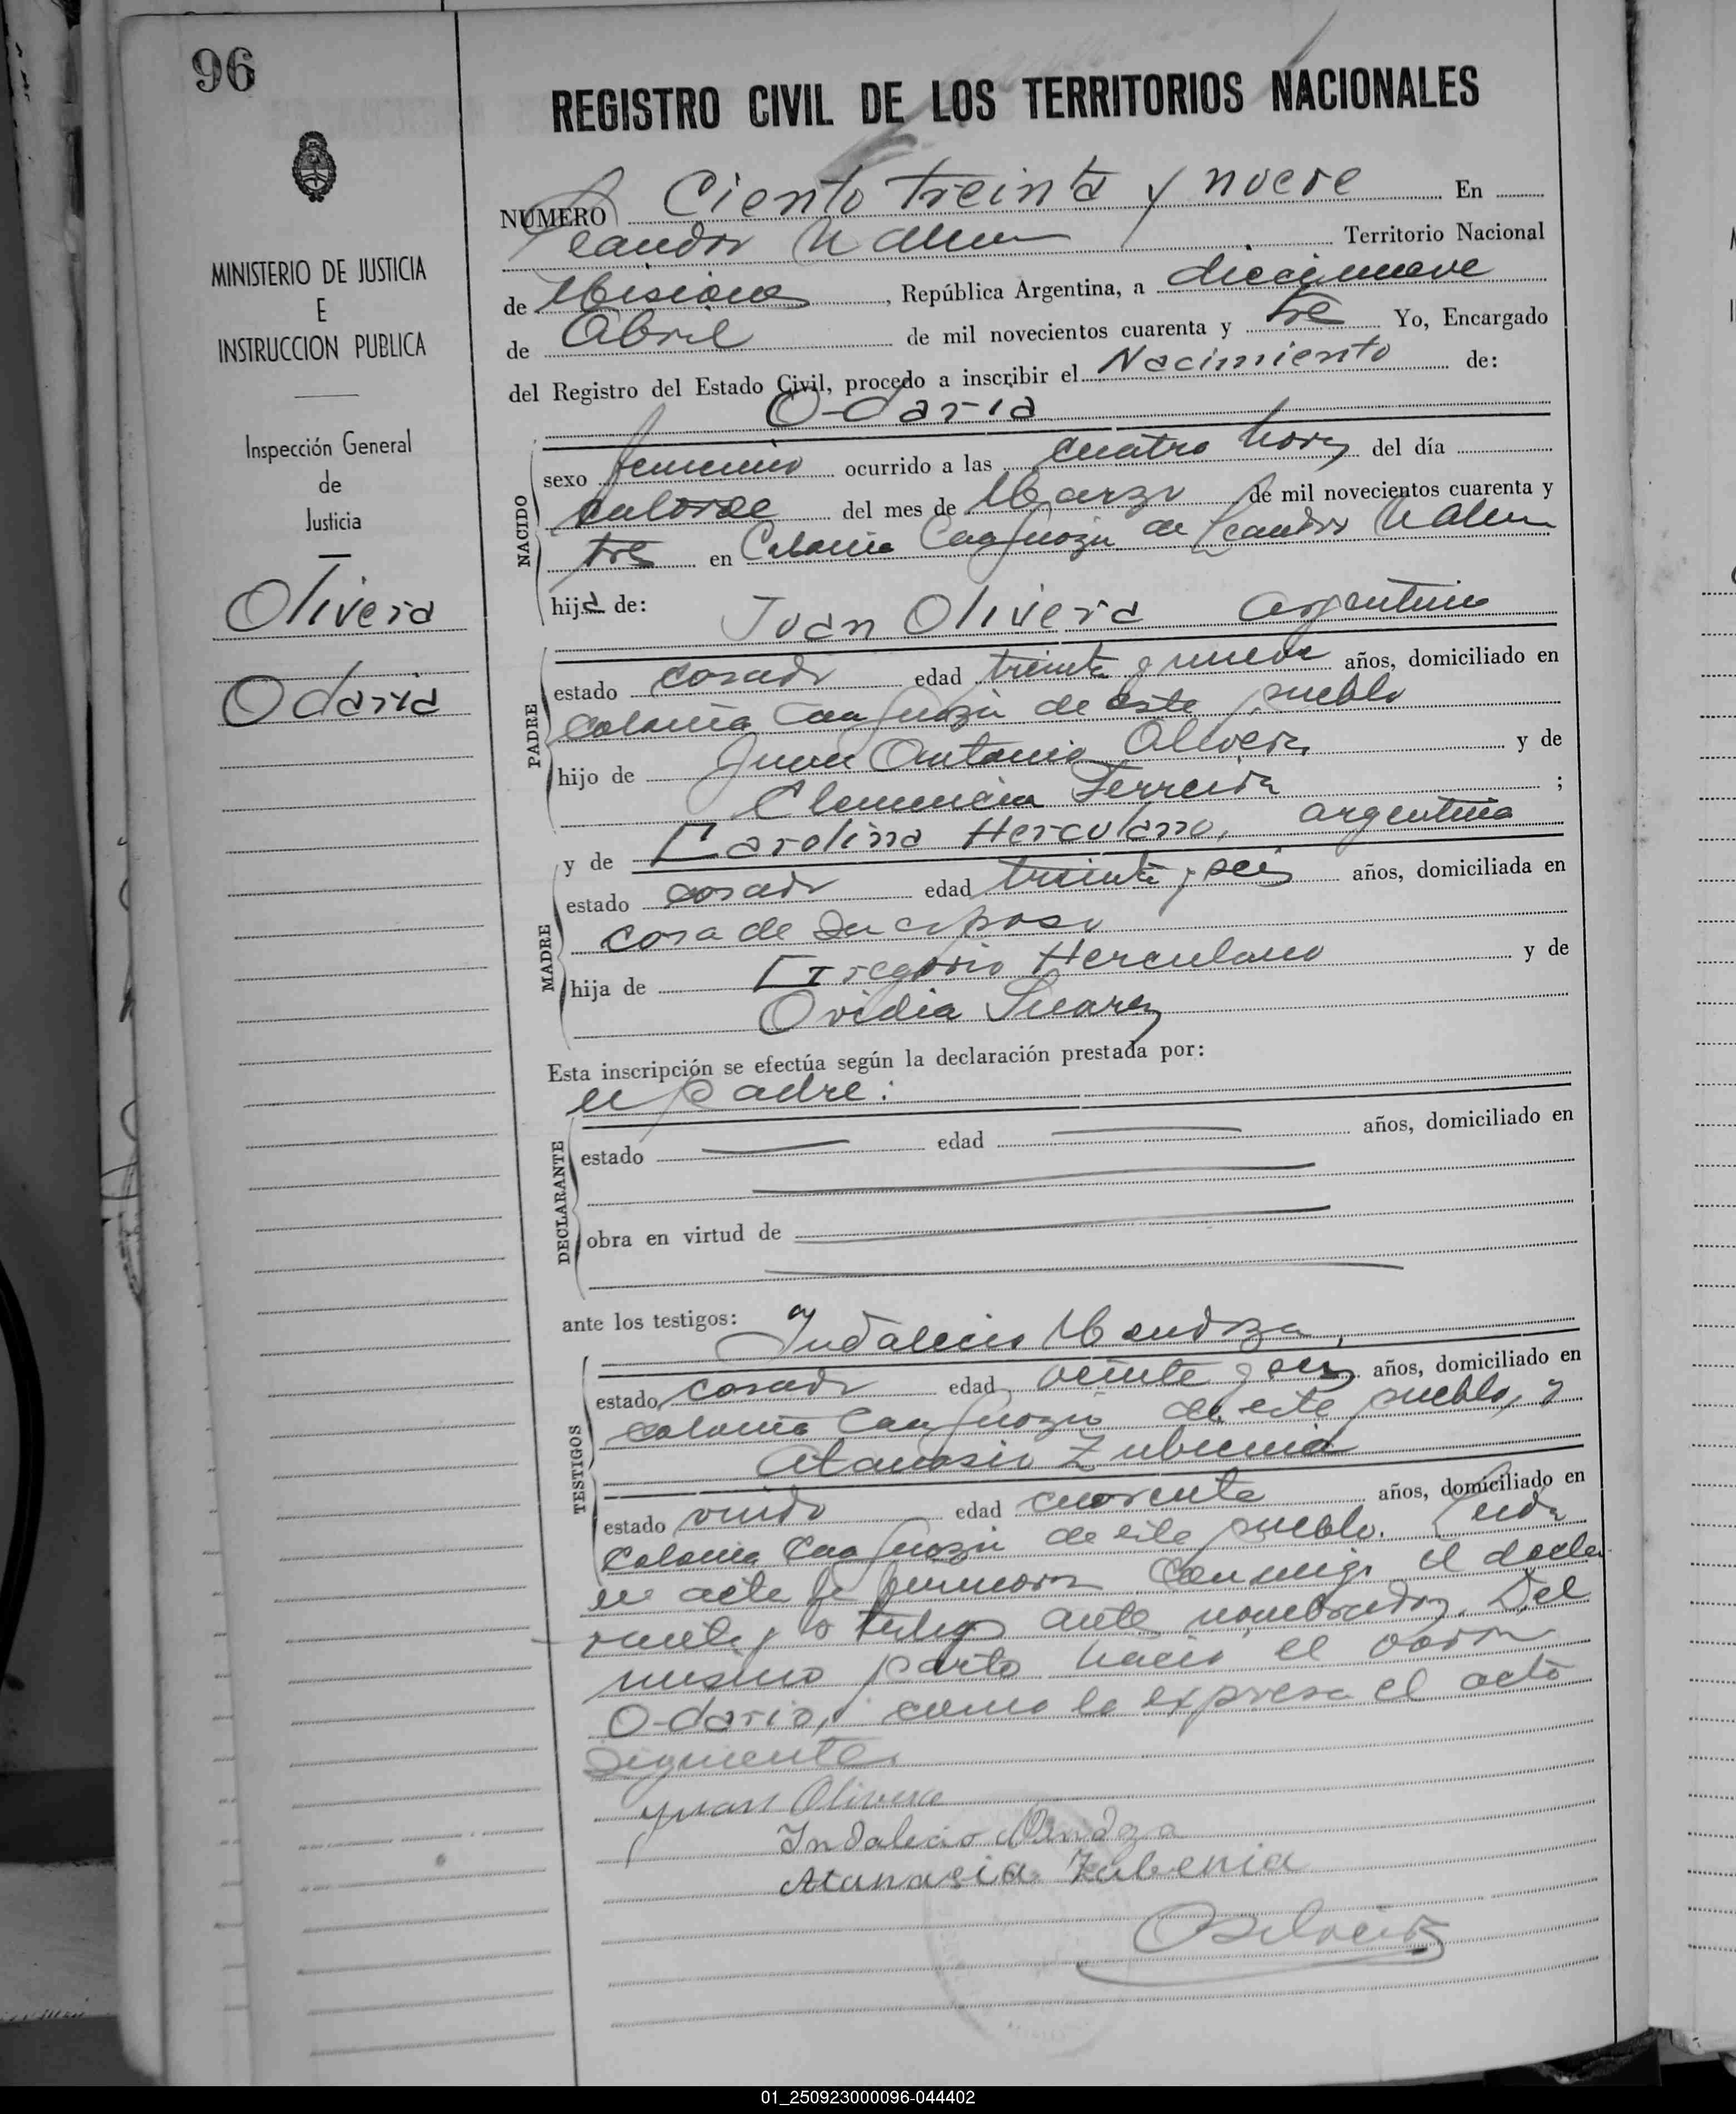 96
REGISTRO CIVIL DE LOS TERRITORIOS NACIONALES
MINISTERIO DE JUSTICIA
E
INSTRUCCION PUBLICA
Inspección General
de
Justicia
Olivera
Odaria
NUMERO Ciento treinta y nueve En
Leandro N Alem Territorio Nacional
de Misiones, República Argentina, a diecinueve
de Abril de mil novecientos cuarenta y tre Yo, Encargado
del Registro del Estado Civil, procedo a inscribir el Nacimiento de:
Odaria
NACIDO
sexo femenino ocurrido a las cuatro horas del día
catorce del mes de Marzo de mil novecientos cuarenta y
tres en Colonia Caaguazu de Leandro N Alem
hija de: Juan Olivera argentino
PADRE
estado casado edad treinta y nueve años, domiciliado en
colonia Caaguazu de este pueblo
hijo de Juan Antonio Olivera y de
Ferreira ;
y de Carolina Herculano, argentina
MADRE
estado casada edad treinta y seis años, domiciliada en
casa de su esposo
hija de Gregorio Herculano y de
Ovidia Suarez
Esta inscripción se efectúa según la declaración prestada por:
el padre:
DECLARANTE
estado edad años, domiciliado en
obra en virtud de
ante los testigos: Indalecio Mendoza,
TESTIGOS
estado casado edad veinte y seis años, domiciliado en
colonia Caaguazu de este pueblo, y
Atanasio Zubenia
estado viudo edad cuarenta años, domiciliado en
Colonia Caaguazu de este pueblo. Leida
el acta la firmaron conmigo el decla
rante y los testigos ante nombrados. Del
mismo parto nacio el varon
Odario, como lo expresa el acto
siguiente.
Juan Olivera
Indalecio Mendoza
Atanasia Zubenia
01_250923000096-044402